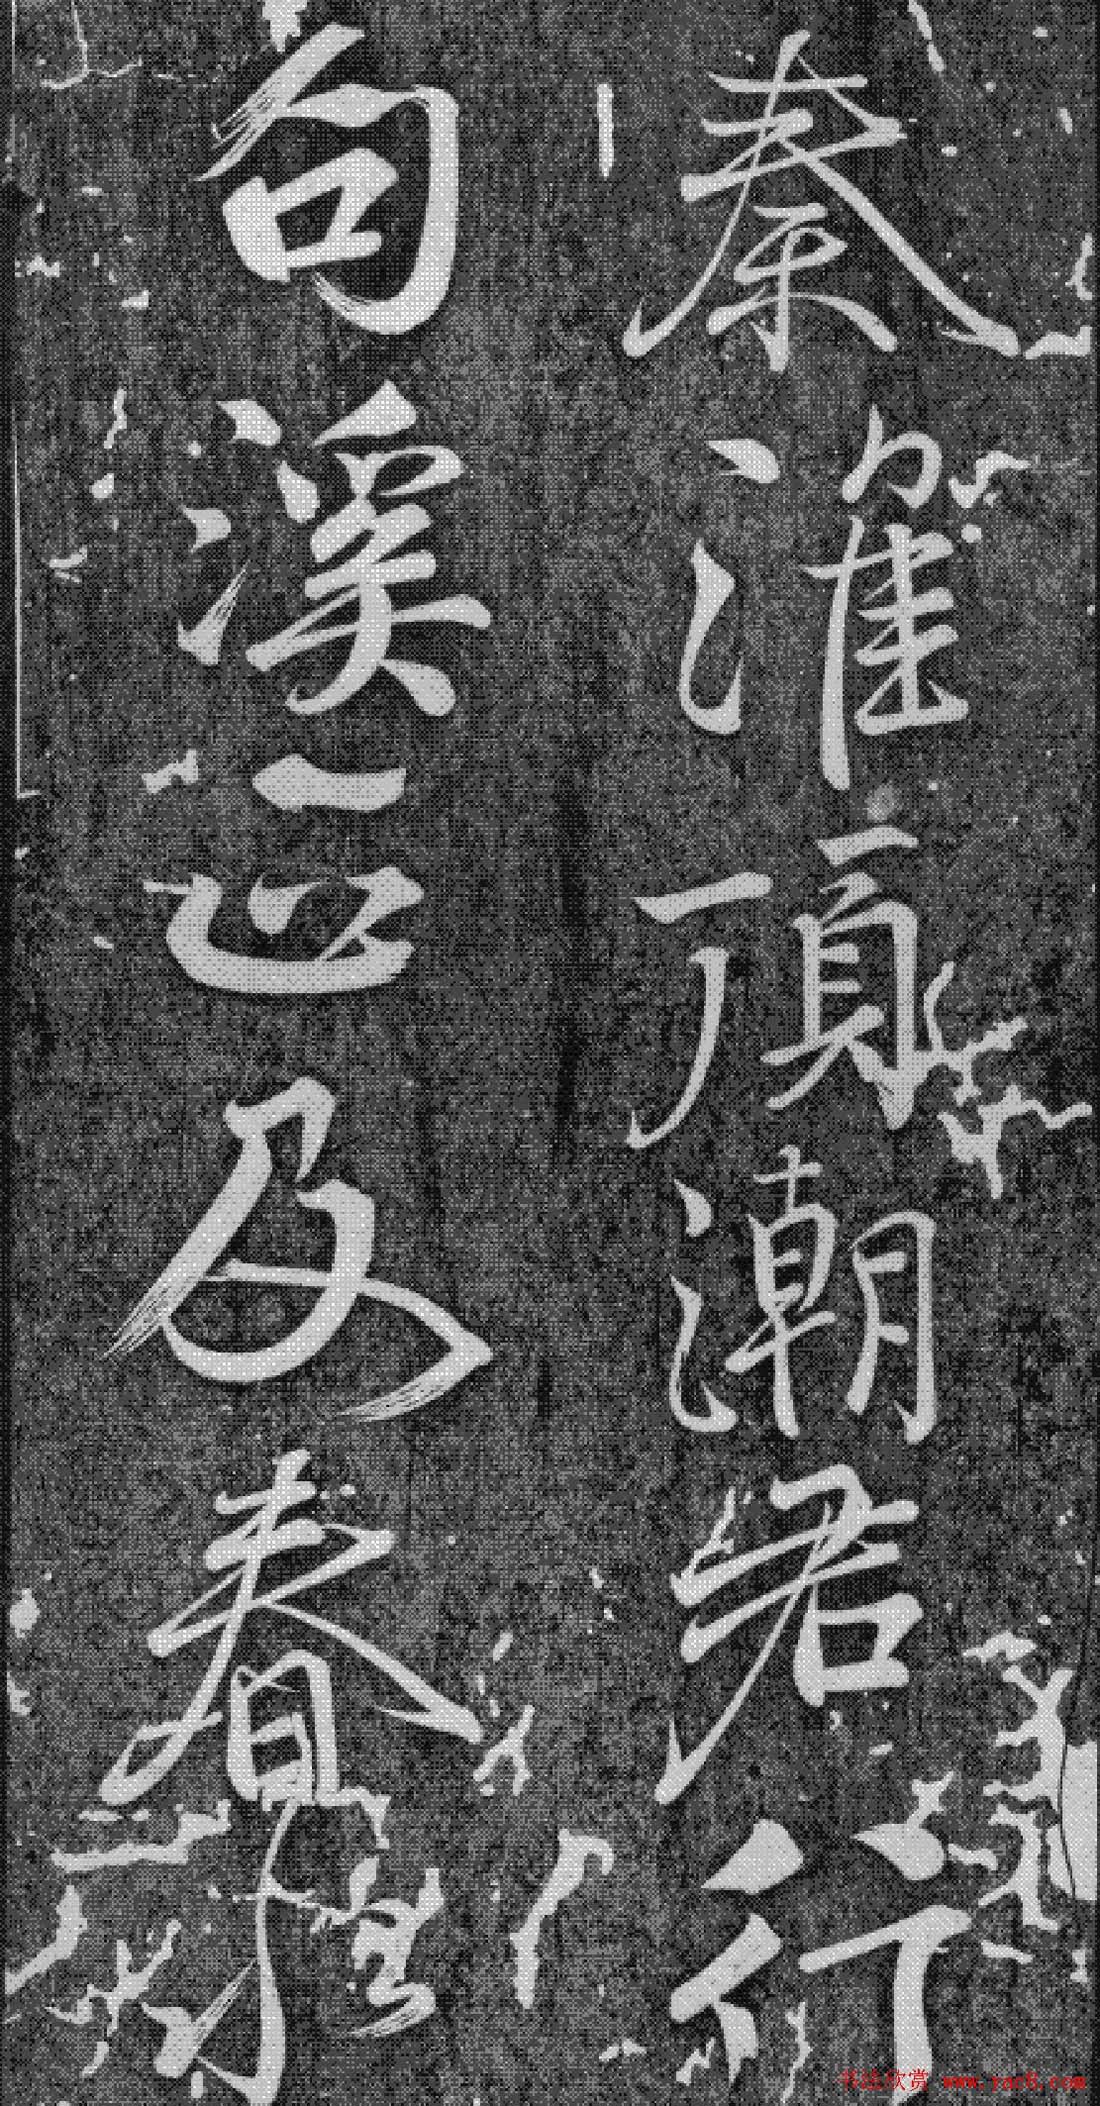 秦淮須潮君行
句溪正及春
书法欣赏 www.yac8.com